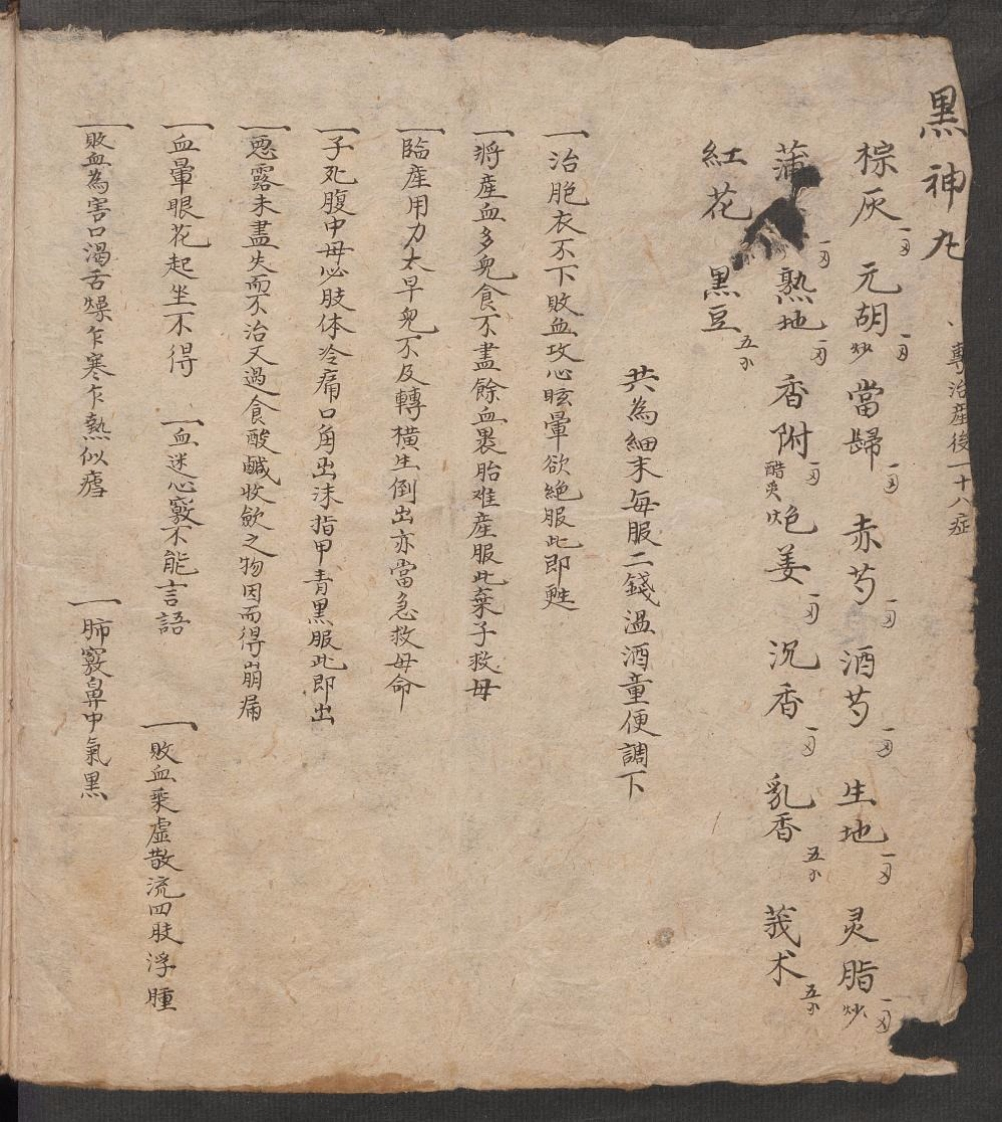 黒神丸 、專治産後一十八症
棕灰一刄 元胡炒一刄 當歸一刄 赤芍一刄 酒芍一刄 生地一刄 灵脂炒一刄
蒲 一刄 熟地一刄 香附醋炙一刄 炮姜一刄 沉香一刄 乳香五分 莪术五分
紅花 黒豆五分
共為細末每服二錢温酒童便調下
一治胞衣不下敗血攻心眩暈欲絶服此即甦
一將産血多兒食不盡餘血裹胎难産服此棄子救母
一臨産用力太早兒不及轉横生倒出亦當急救母命
一子死腹中母必肢体冷痛口角出沫指甲青黑服此即出
一惡露未盡失而不治又過食酸鹹收歛之物因而得崩痛
一血暈眼花起坐不得 一血迷心竅不能言語 一敗血乘虛散流四肢浮腫
一敗血為害口渴舌燥乍寒乍熱似瘧 一肺竅鼻中氣黒